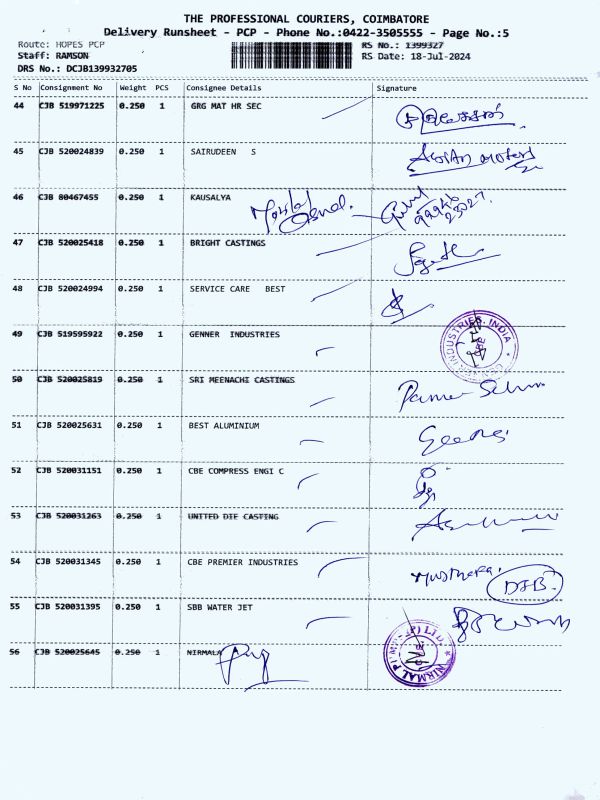 THE PROFESSIONAL COURIERS, COIMBATORE
Delivery Runsheet - PCP - Phone No.:0422-3505555 - Page No.:5
Route: HOPES PCP RS No.: 1399327
Staff: RAMSON RS Date: 18-Jul-2024
DRS No.: DCJB139932705
S No Consignment No Weight PCS Consignee Details Signature
44 CJB 519971225 0.250 1 GRG MAT HR SEC
45 CJB 520024839 0.250 1 SAIRUDEEN S
46 CJB 80467455 0.250 1 KAUSALYA
47 CJB 520025418 0.250 1 BRIGHT CASTINGS
48 CJB 520024994 0.250 1 SERVICE CARE BEST
49 CJB 519595922 0.250 1 GENNER INDUSTRIES
INDUSTRIES INDIA CBE
50 CJB 520025819 0.250 1 SRI MEENACHI CASTINGS
51 CJB 520025631 0.250 1 BEST ALUMINIUM
52 CJB 520031151 0.250 1 CBE COMPRESS ENGI C
53 CJB 520031263 0.250 1 UNITED DIE CASTING
54 CJB 520031345 0.250 1 CBE PREMIER INDUSTRIES
55 CJB 520031395 0.250 1 SBB WATER JET
56 CJB 520025645 0.250 1 NIRMALA
NIRMAL (P) LTD.